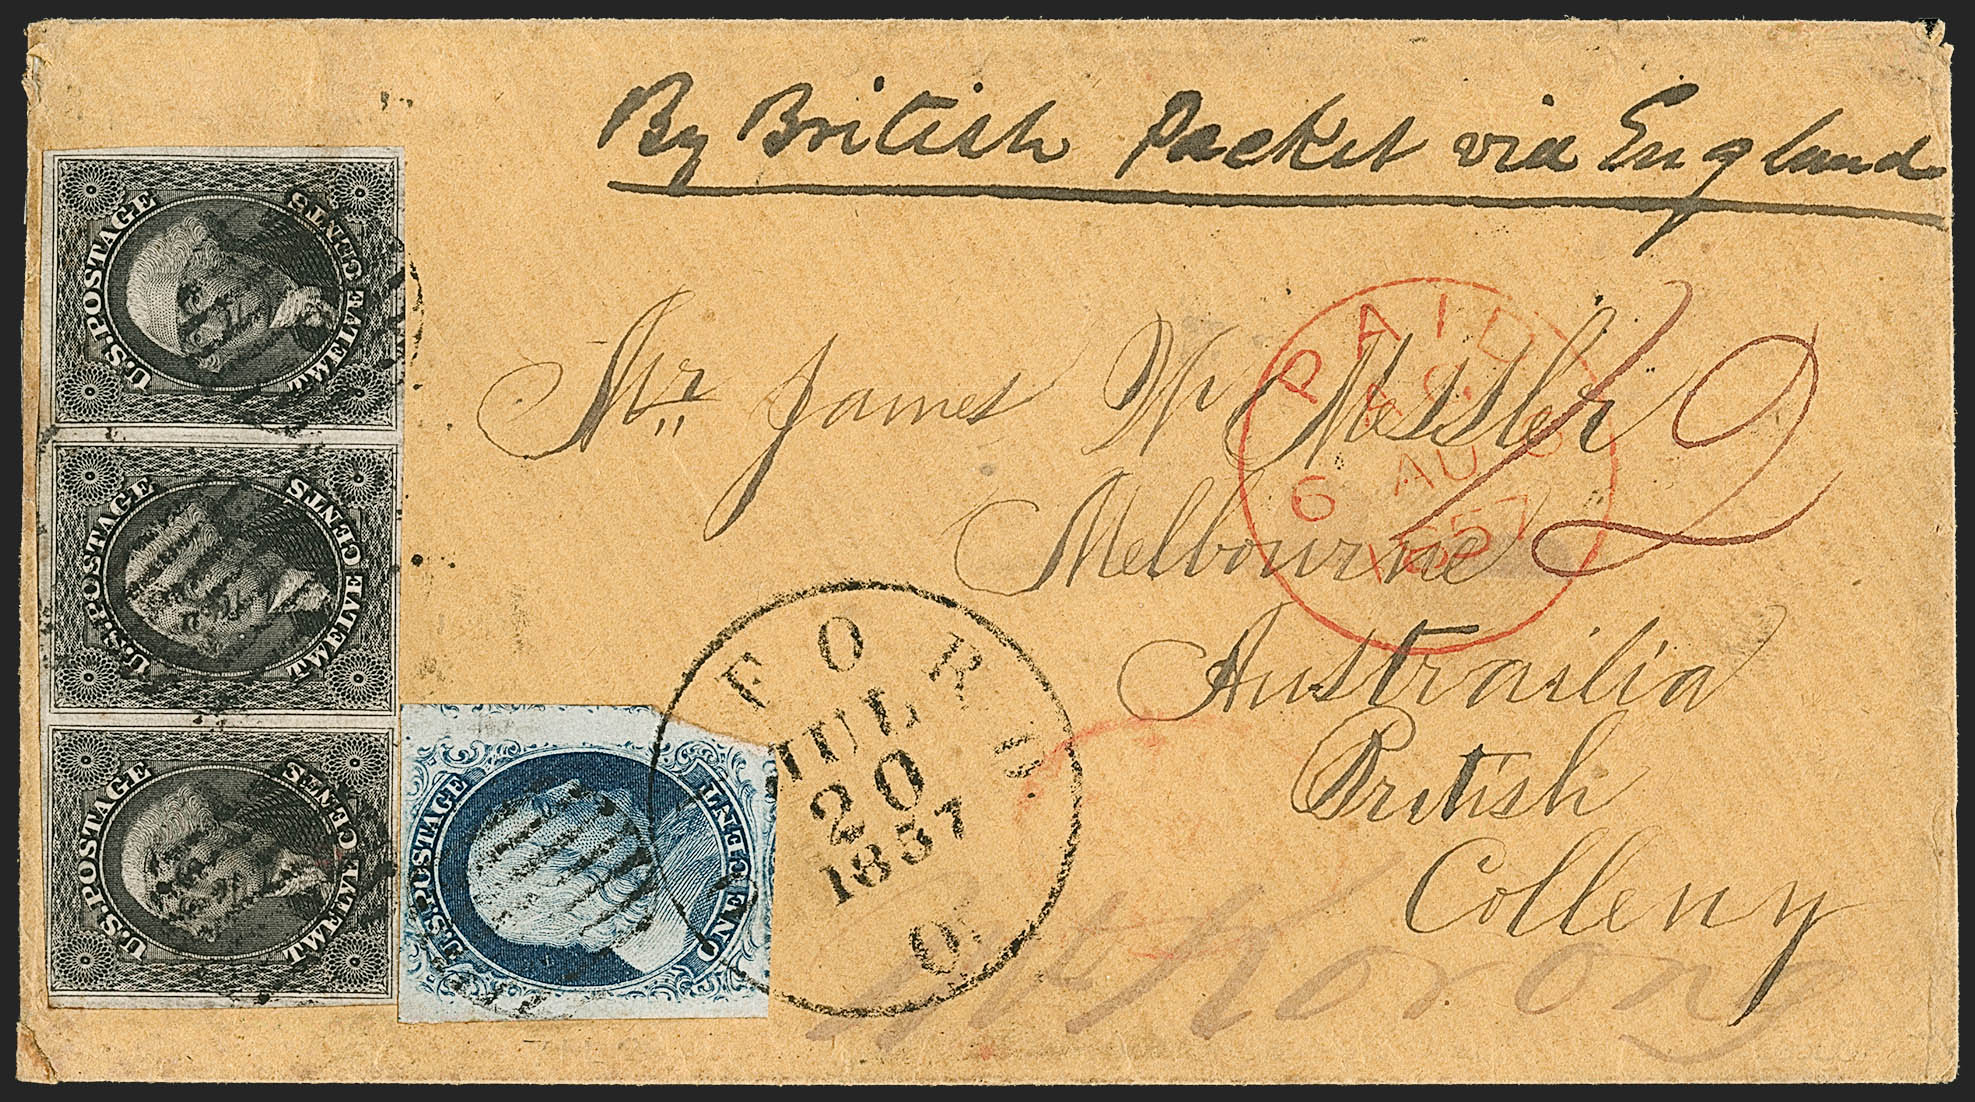 By British Packet via England
U.S. POSTAGE
TWELVE CENTS
U.S. POSTAGE
TWELVE CENTS
U.S. POSTAGE
TWELVE CENTS
U.S. POSTAGE
ONE CENT
PAID
6 AU 6
1857
Mr James W Messler
Melbourne
Australia
British
Colleny
2
FORD
JUL
20
1857
O.
Mt Korong